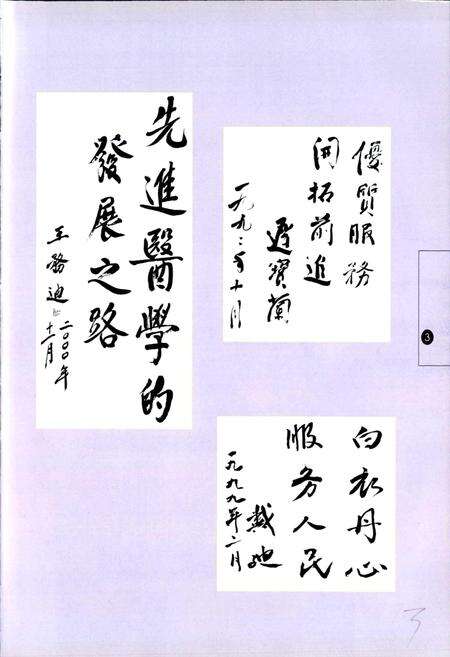 先進醫學的
發展之路
王務迪
二〇〇〇年
十一月
優質服務
開拓前進
遲寶蘭
十月
白衣丹心
服务人民
戴迪
一九九九年二月
3
3